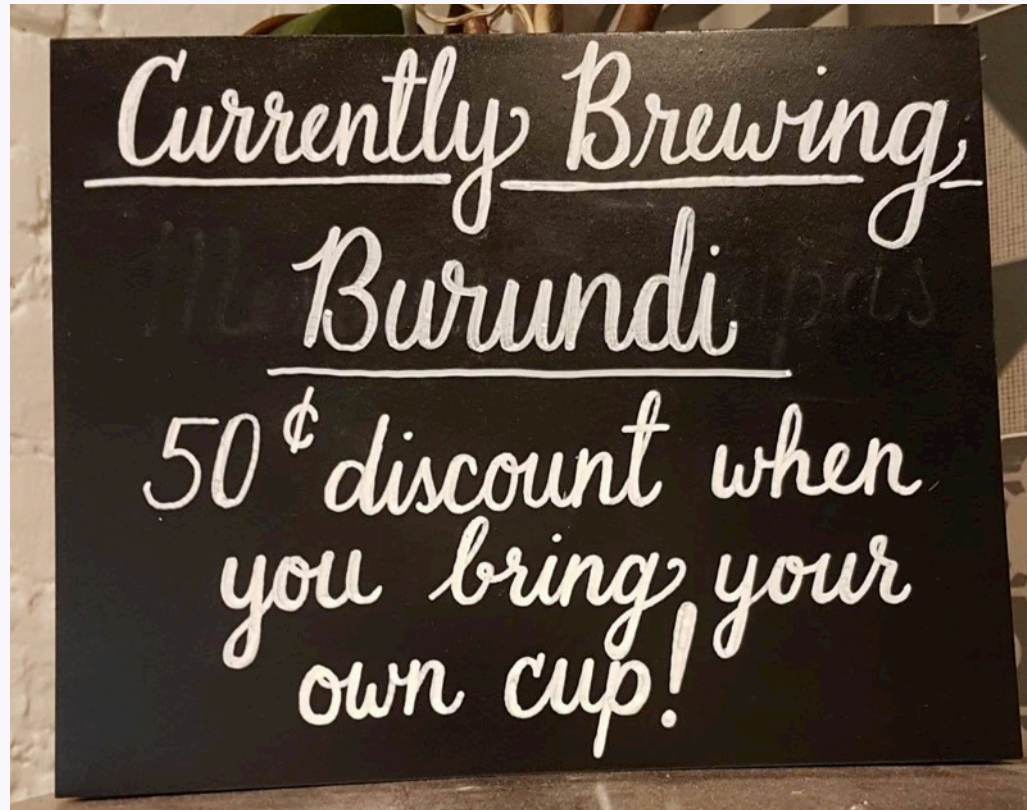 Currently Brewing
Burundi
50¢ discount when
you bring your
own cup!